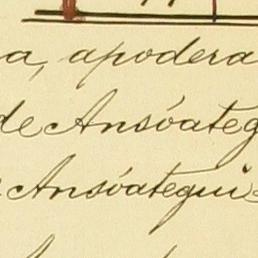 a, apodera
de Ansóateg
Ansóategui